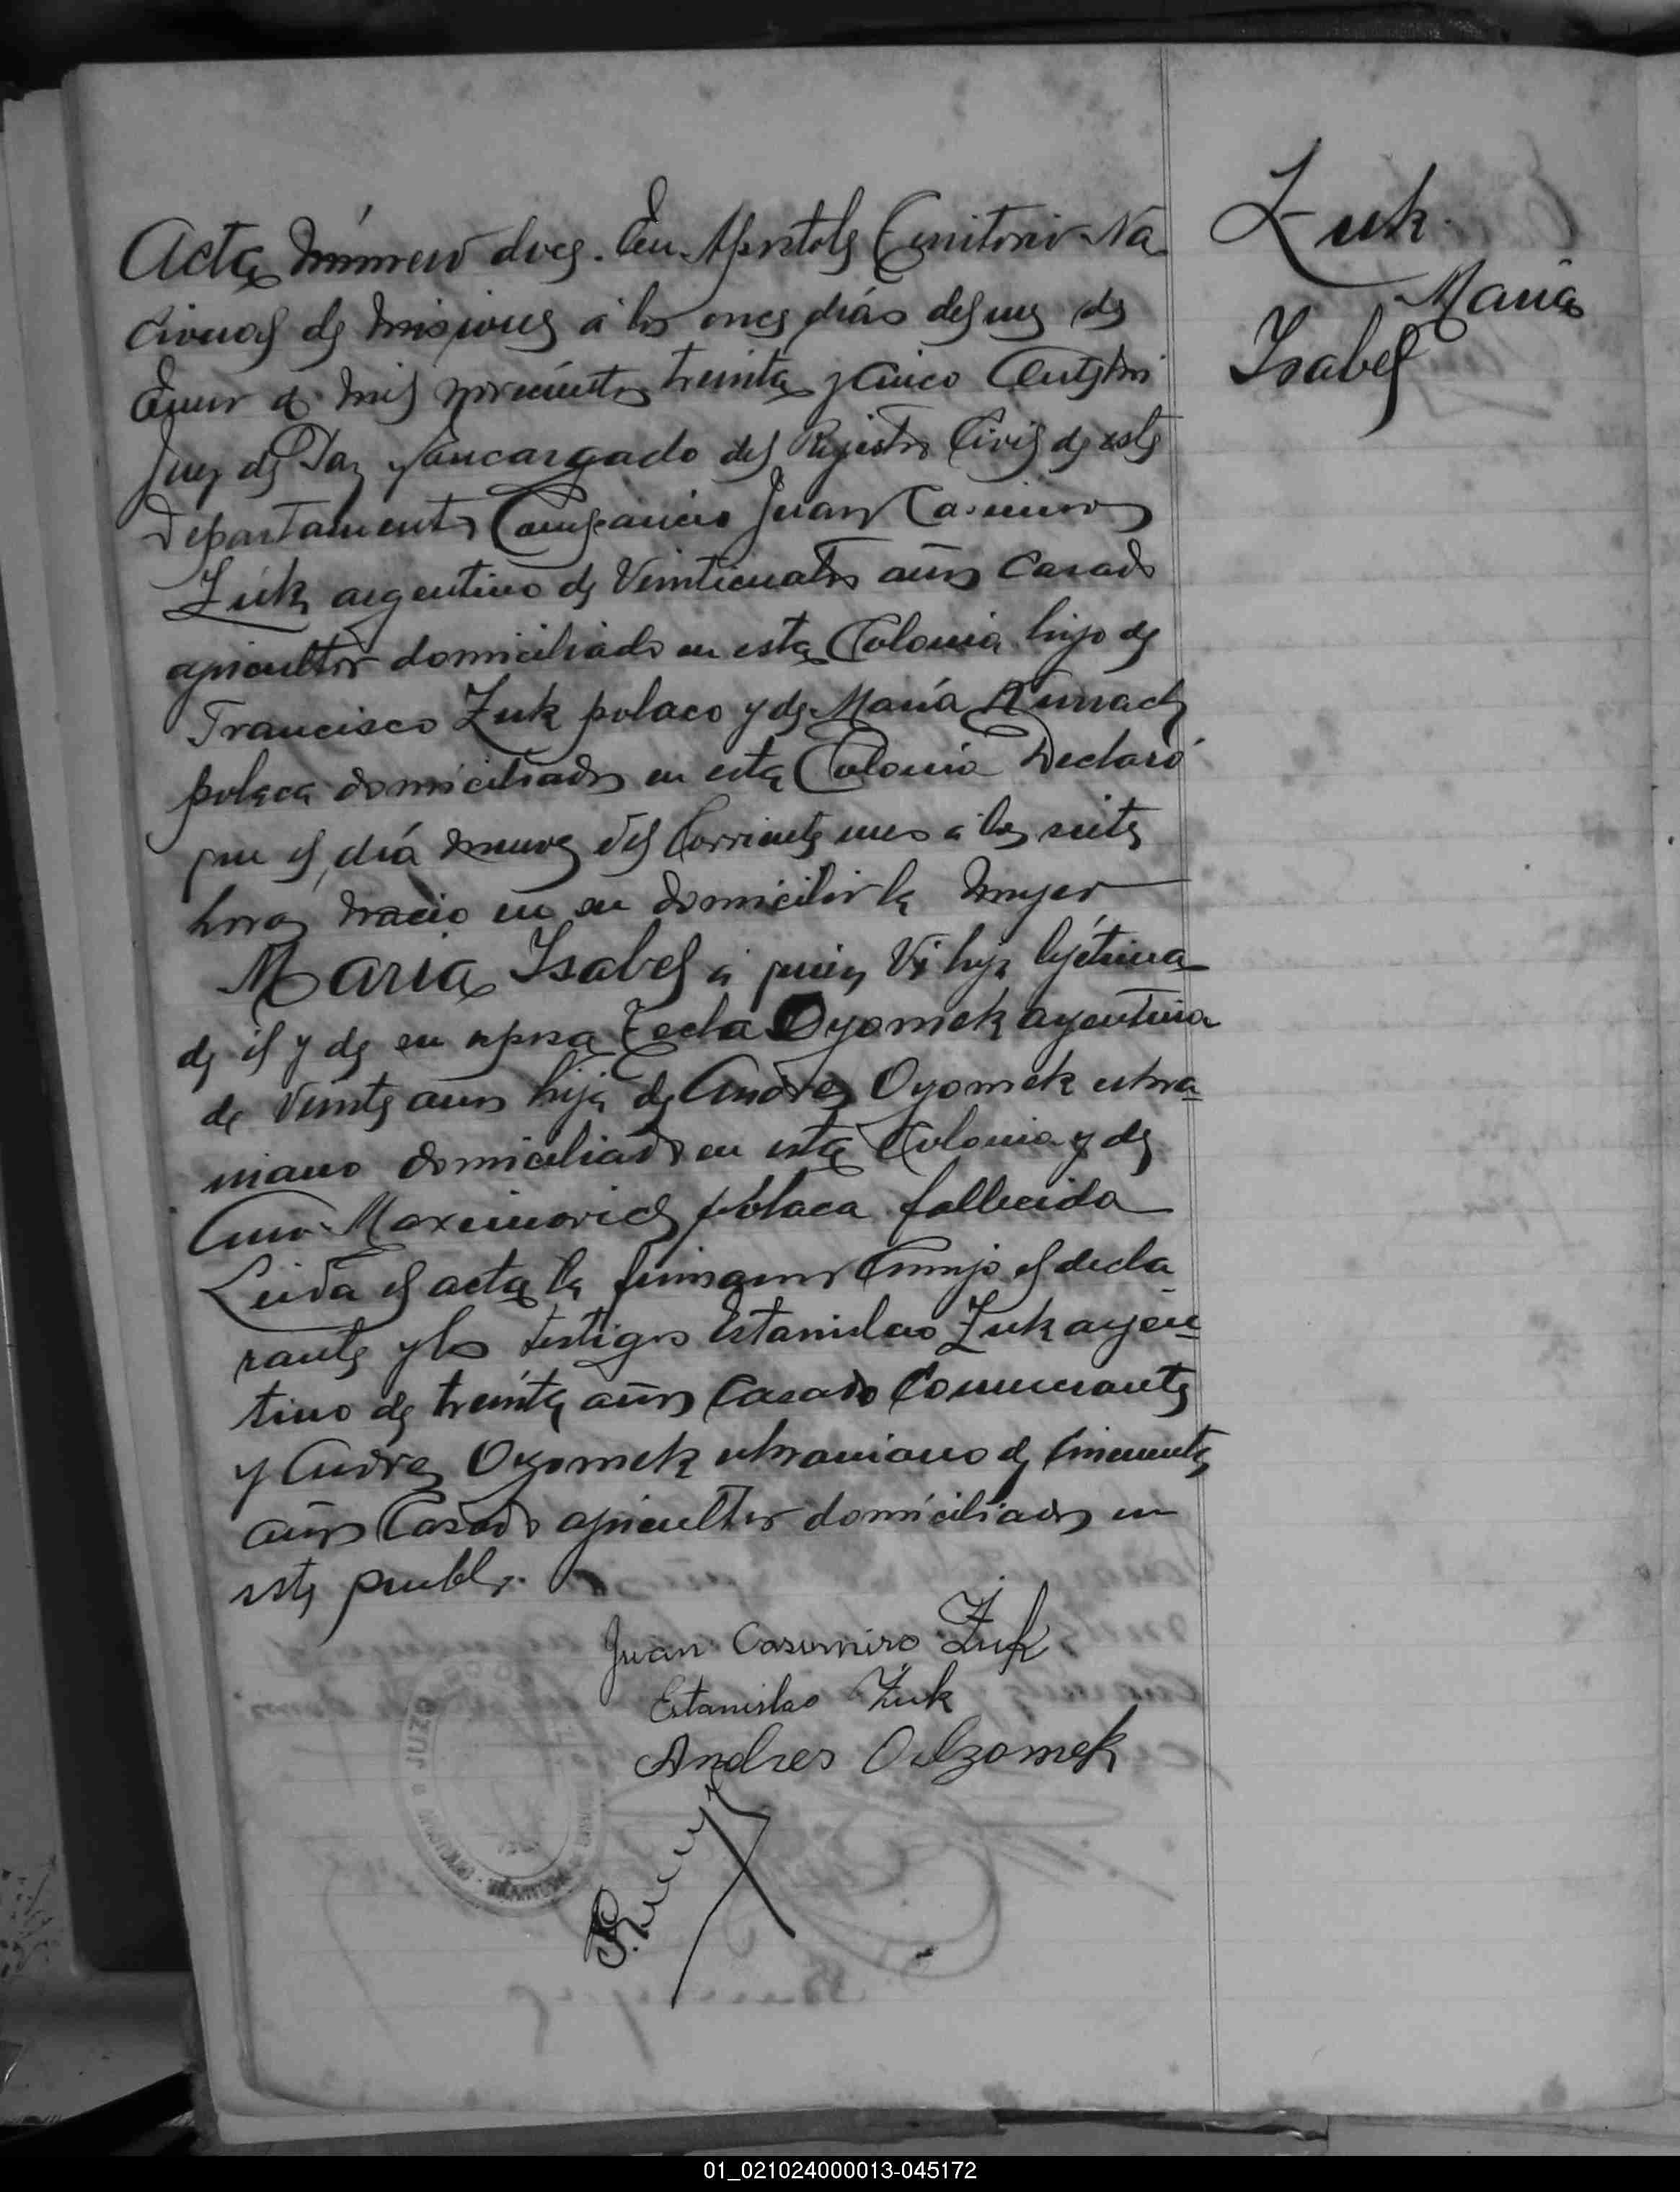 Acta número doce. En Apóstoles Territorio Na
cional de Misiones á los once días del mes de
Enero de mil novecientos treinta y cinco Ante mi
Juez de Paz y encargado del Registro Civil de este
Departamento Compareció Juan Casimiro
Zuk argentino de Veinticuatro años Casado
agricultor domiciliado en esta Colonia hijo de
Francisco Zuk polaco y de María
polaca domiciliados en esta Colonia Declaró
que el día nueve del Corriente mes a las siete
horas nació en su domicilio la mujer
Maria Isabel á quien Vi hija lejítima
de él y de su esposa Tecla Oyomek argentina
de Veinte años hija de Andres Oyomek ukra
niano domiciliado en esta Colonia y de
Ana Maximovich polaca fallecida
Leida el acta la firmaron Conmigo el decla
rante y los testigos Estanislao Zuk argen
tino de treinta años Casado Comerciante
y Andres Oyomek ukraniano de Cincuenta
años Casado agricultor domiciliados en
este pueblo.
Juan Casimiro Żuk
Estanislao Żuk
Andres Odzomek
Zuk
Maria
Isabel
JUZGADO
01_021024000013-045172